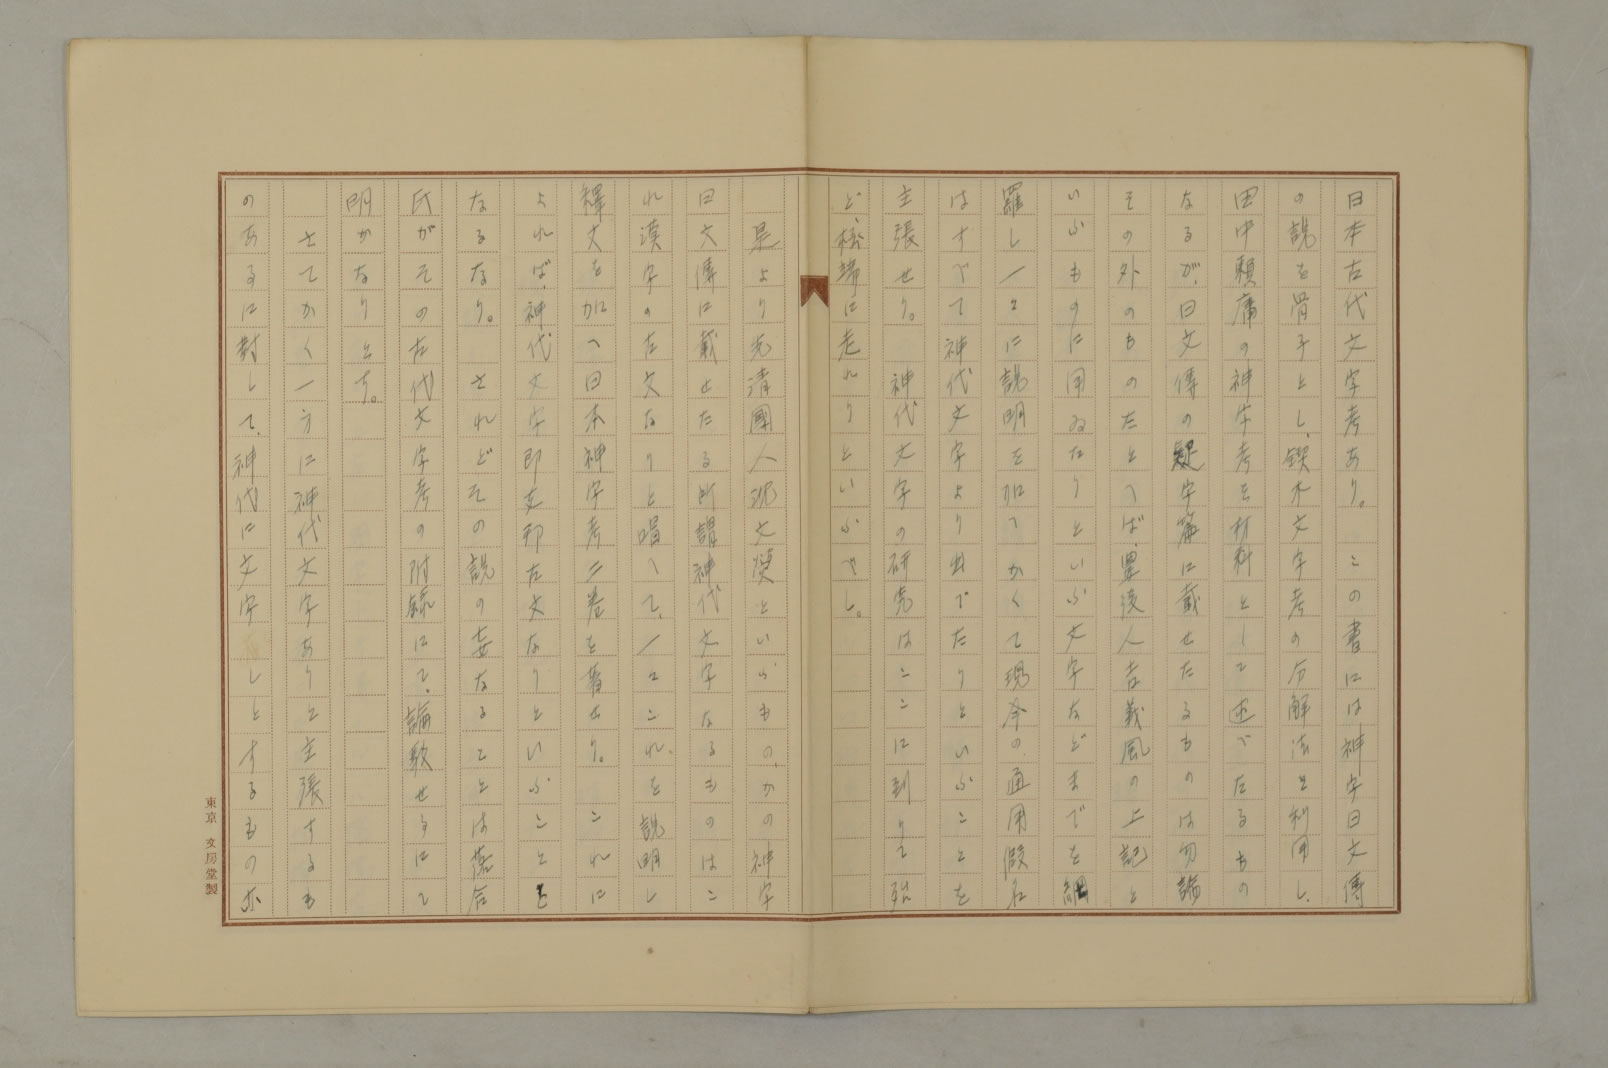 日本古代文字考あり。　この書には神字日文傳
の説を骨子とし、鍥木文字考の分解法を利用し、
田中頼庸の神字考を材料として述べたるもの
なるが、日文傳の疑字篇に載せたるものは勿論
その外のものたとへば、豊後人吉義風の上記と
いふものに用ゐたりといふ文字などまでを網
羅し一々に説明を加へかくて現今の通用假名
はすべて神代文字より出でたりといふことを
主張せり。　神代文字の研究はここに到りて殆
ど、極端に走れりといふべし。
　是より先清國人沈文熒といふもの、かの神字
日文傳に載せたる所謂神代文字なるものはこ
れ漢字の古文なりと唱へて、一々これを説明し
釋文を加へ日本神字考二巻を著せり。　これに
よれば、神代文字即支那古文なりといふことと
なるなり。　されどその説の妄なることは落合
氏がその古代文字考の附録にて、論駁せるにて
明かなりとす。
　さてかく一方に神代文字ありと主張するも
のあるに對して、神代に文字無しとするもの亦
東京　文房堂製